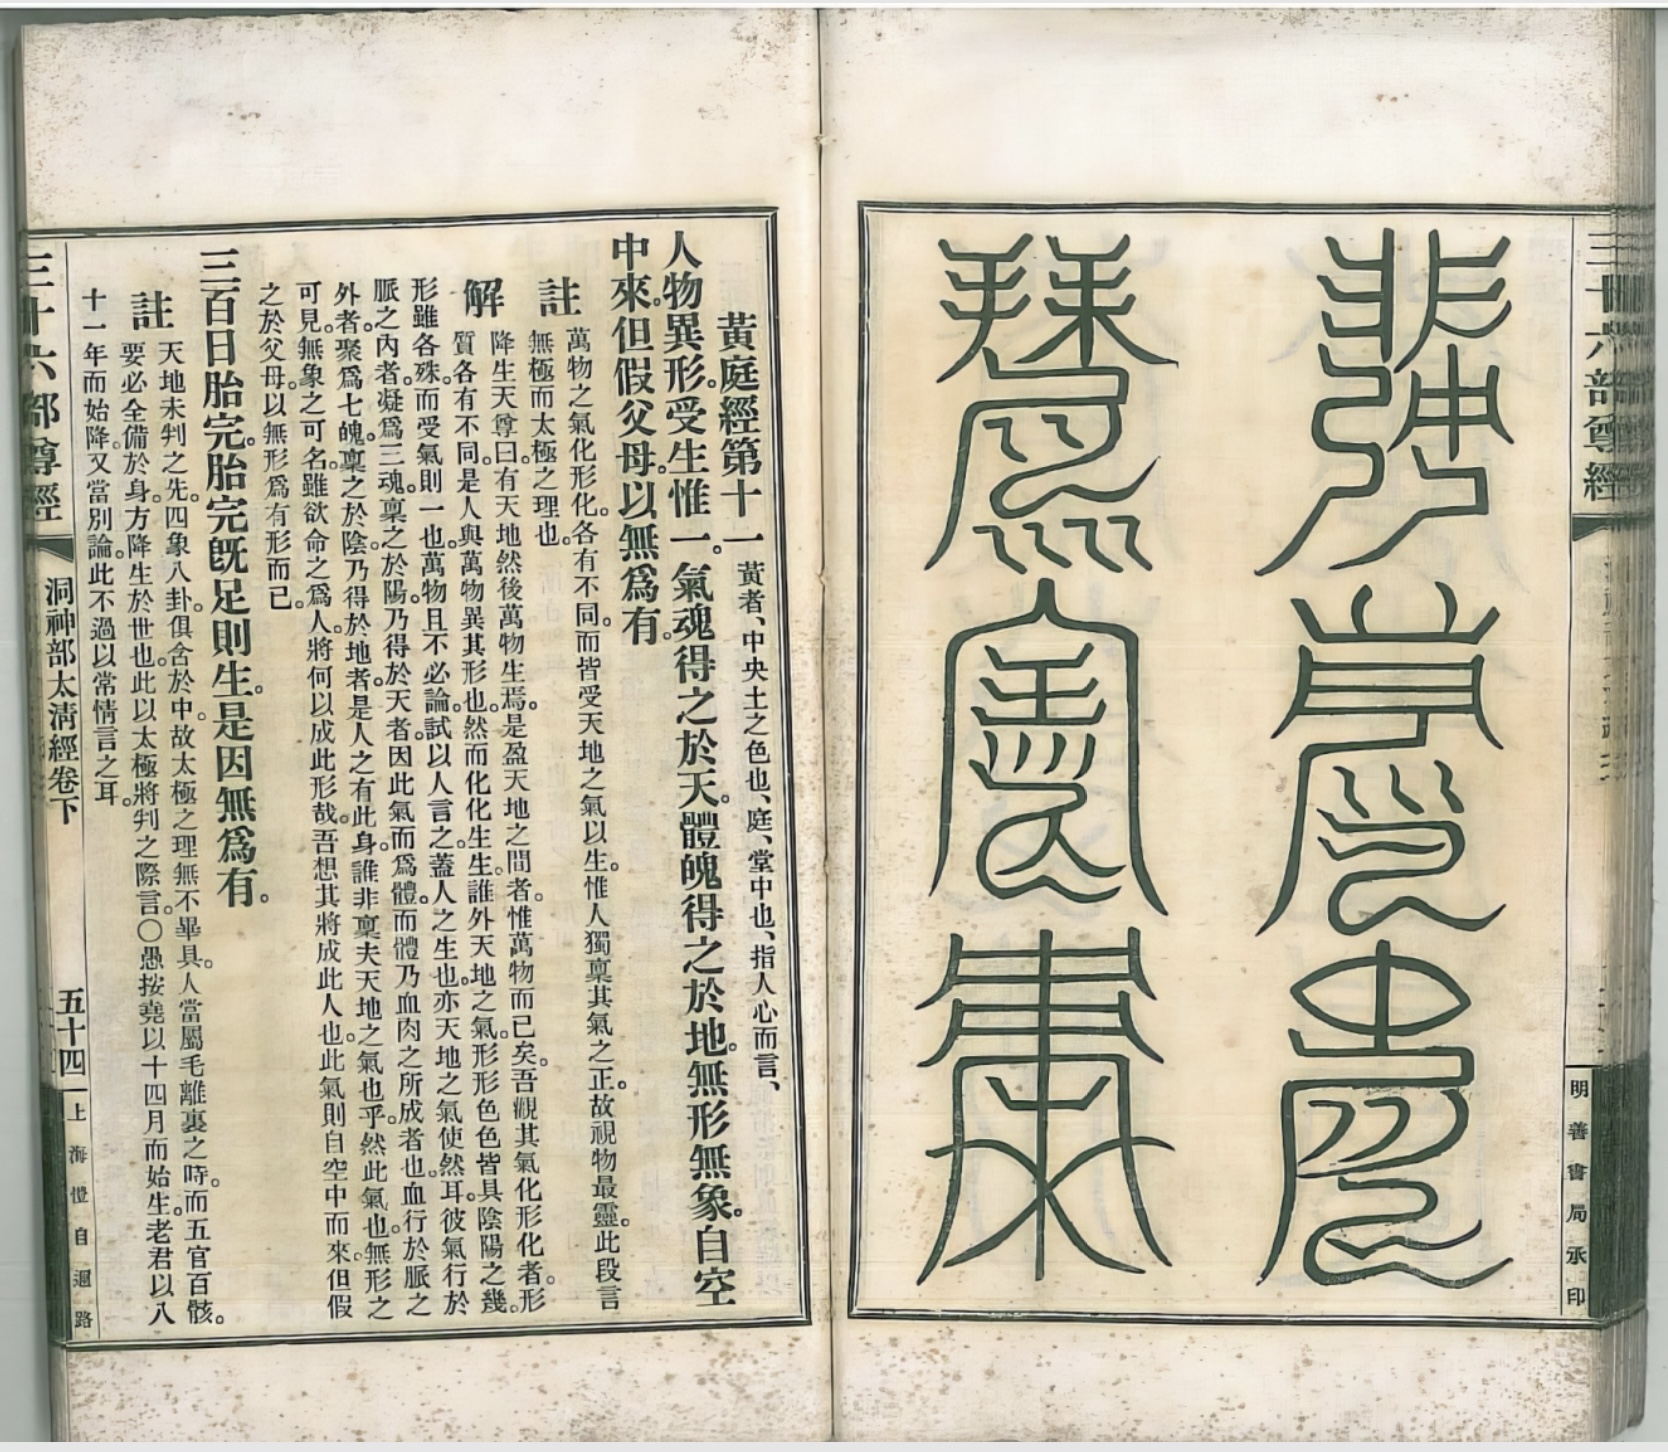 三十六部尊經
明善書局承印
黃庭經第十一黃者、中央土之色也、庭、堂中也、指人心而言、
人物異形。受生惟一。氣魂得之於天。體魄得之於地。無形無象。自空
中來。但假父母。以無爲有。
註
萬物之氣化形化。各有不同。而皆受天地之氣以生。惟人獨稟其氣之正。故視物最靈。此段言
無極而太極之理也。
解
降生天尊曰。有天地然後萬物生焉。是盈天地之間者。惟萬物而已矣。吾觀其氣化形化者。形
質各有不同。是人與萬物異其形也。然而化化生生。誰外天地之氣。形形色色。皆具陰陽之幾。
形雖各殊。而受氣則一也。萬物且不必論。試以人言之。蓋人之生也。亦天地之氣使然耳。彼氣行於
脈之內者。凝爲三魂。稟之於陽。乃得於天者。因此氣而爲體。而體乃血肉之所成者也。血行於脈之
外者。聚爲七魄。稟之於陰。乃得於地者。是人之有此身。誰非稟夫天地之氣也乎。然此氣也。無形之
可見。無象之可名。雖欲命之爲人。將何以成此形哉。吾想其將成此人也。此氣則自空中而來。但假
之於父母。以無形爲有形而已。
三百日胎完。胎完旣足則生。是因無爲有。
註
天地未判之先。四象八卦。俱含於中。故太極之理無不畢具。人當屬毛離裏之時。而五官百骸。
要必全備於身。方降生於世也。此以太極將判之際言。〇愚按堯以十四月而始生。老君以八
十一年而始降。又當別論。此不過以常情言之耳。
三十六部尊經
洞神部太淸經卷下
五十四
上海愷自邇路